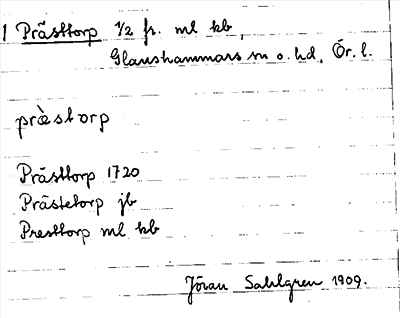 1 Prästtorp 1/2 fr. ml kb,
Glanshammars sn o. hd, Ör. l.
prästorp
Prästtorp 1720
Prästetorp jb
Presttorp ml kb
Jöran Sahlgren 1909.